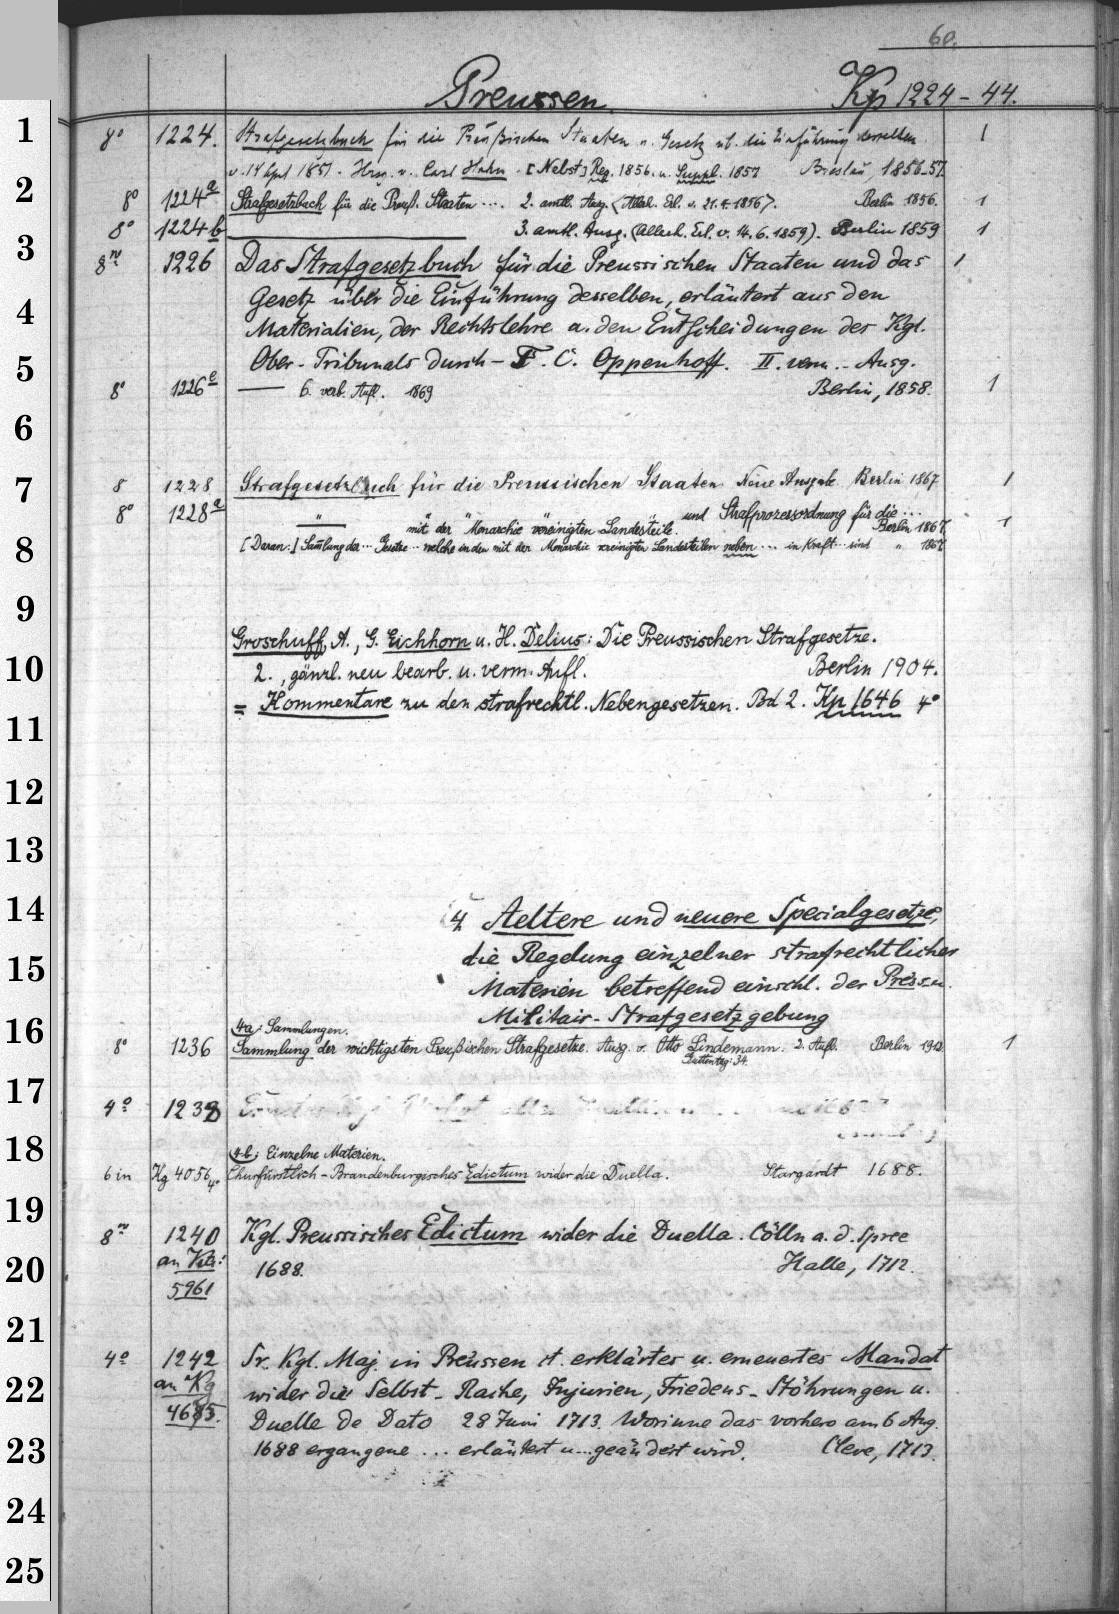 60.
Preussen
Kp 1224-44.
1
8° 1224. Strafgesetzbuch für die Preußischen Staaten u. Gesetz üb. die Einführung desselben 1
v. 14 April 1851. Hrsg. v. Carl Hahn. [Nebst] Reg. 1856. u. Suppl. 1857 Breslau, 1856-57.
2
8° 1224a Strafgesetzbuch für die Preuß. Staaten .... 2. amtl. Ausg. (Allerh. Erl. v. 21.4.1856). Berlin 1856. 1
8° 1224b ——— 3. amtl. Ausg. (Allerh. Erl. v. 14.6.1859). Berlin 1859 1
3
8° 1226 Das Strafgesetzbuch für die Preussischen Staaten und das 1
Gesetz über die Einführung desselben, erläutert aus den
4
Materialien, der Rechtslehre u. den Entscheidungen des Kgl.
5
Ober-Tribunals durch - F. C. Oppenhoff. II. verm. - Ausg.
8° 1226e — 6. verb. Aufl. 1869 Berlin, 1858. 1
6
7
8 1228 Strafgesetzbuch für die Preussischen Staaten Neue Ausgabe Berlin 1867 1
8° 1228a " " " und Strafprozessordnung für die ...
mit der Monarchie vereinigten Landesteile. Berlin 1867. 1
8
[Daran:] Samlung der ... Gesetze ... welche in den mit der Monarchie vereinigten Landesteilen neben ... in Kraft ... sind " 1867
9
Groschuff, A., G. Eichhorn u. H. Delius: Die Preussischen Strafgesetze.
10
2., gänzl. neu bearb. u. verm. Aufl. Berlin 1904.
= Kommentare zu den strafrechtl. Nebengesetzen. Bd 2. Kp 1646 4°
11
12
13
14
4 Aeltere und neuere Specialgesetze,
15
die Regelung einzelner strafrechtlicher
Materien betreffend einschl. der Press- u.
16
Militair-Strafgesetzgebung
4a: Sammlungen.
8° 1236 Sammlung der wichtigsten Preußischen Strafgesetze. Ausg. v. Otto Lindemann. 2. Aufl. Berlin 1912 1
Guttentag: 34.
17
4° 1238
18
4b: Einzelne Materien.
6 in Kg 4056 4° Churfürstlich-Brandenburgisches Edictum wider die Duella. Stargardt 1688.
19
8° 1240 Kgl. Preussisches Edictum wider die Duella. Cölln a. d. Spree
20
an 1688. Halle, 1712.
5961
21
4° 1242 Sr. Kgl. Maj. in Preussen et. erklärtes u. erneuertes Mandat
22
an Kg wider die Selbst-Rache, Injurien, Friedens-Stöhrungen u.
4685. Duelle de Dato 28 Juni 1713. Worinne das vorhero am 6 Aug.
23
1688 ergangene ... erläutert u... geändert wird. Cleve, 1713.
24
25